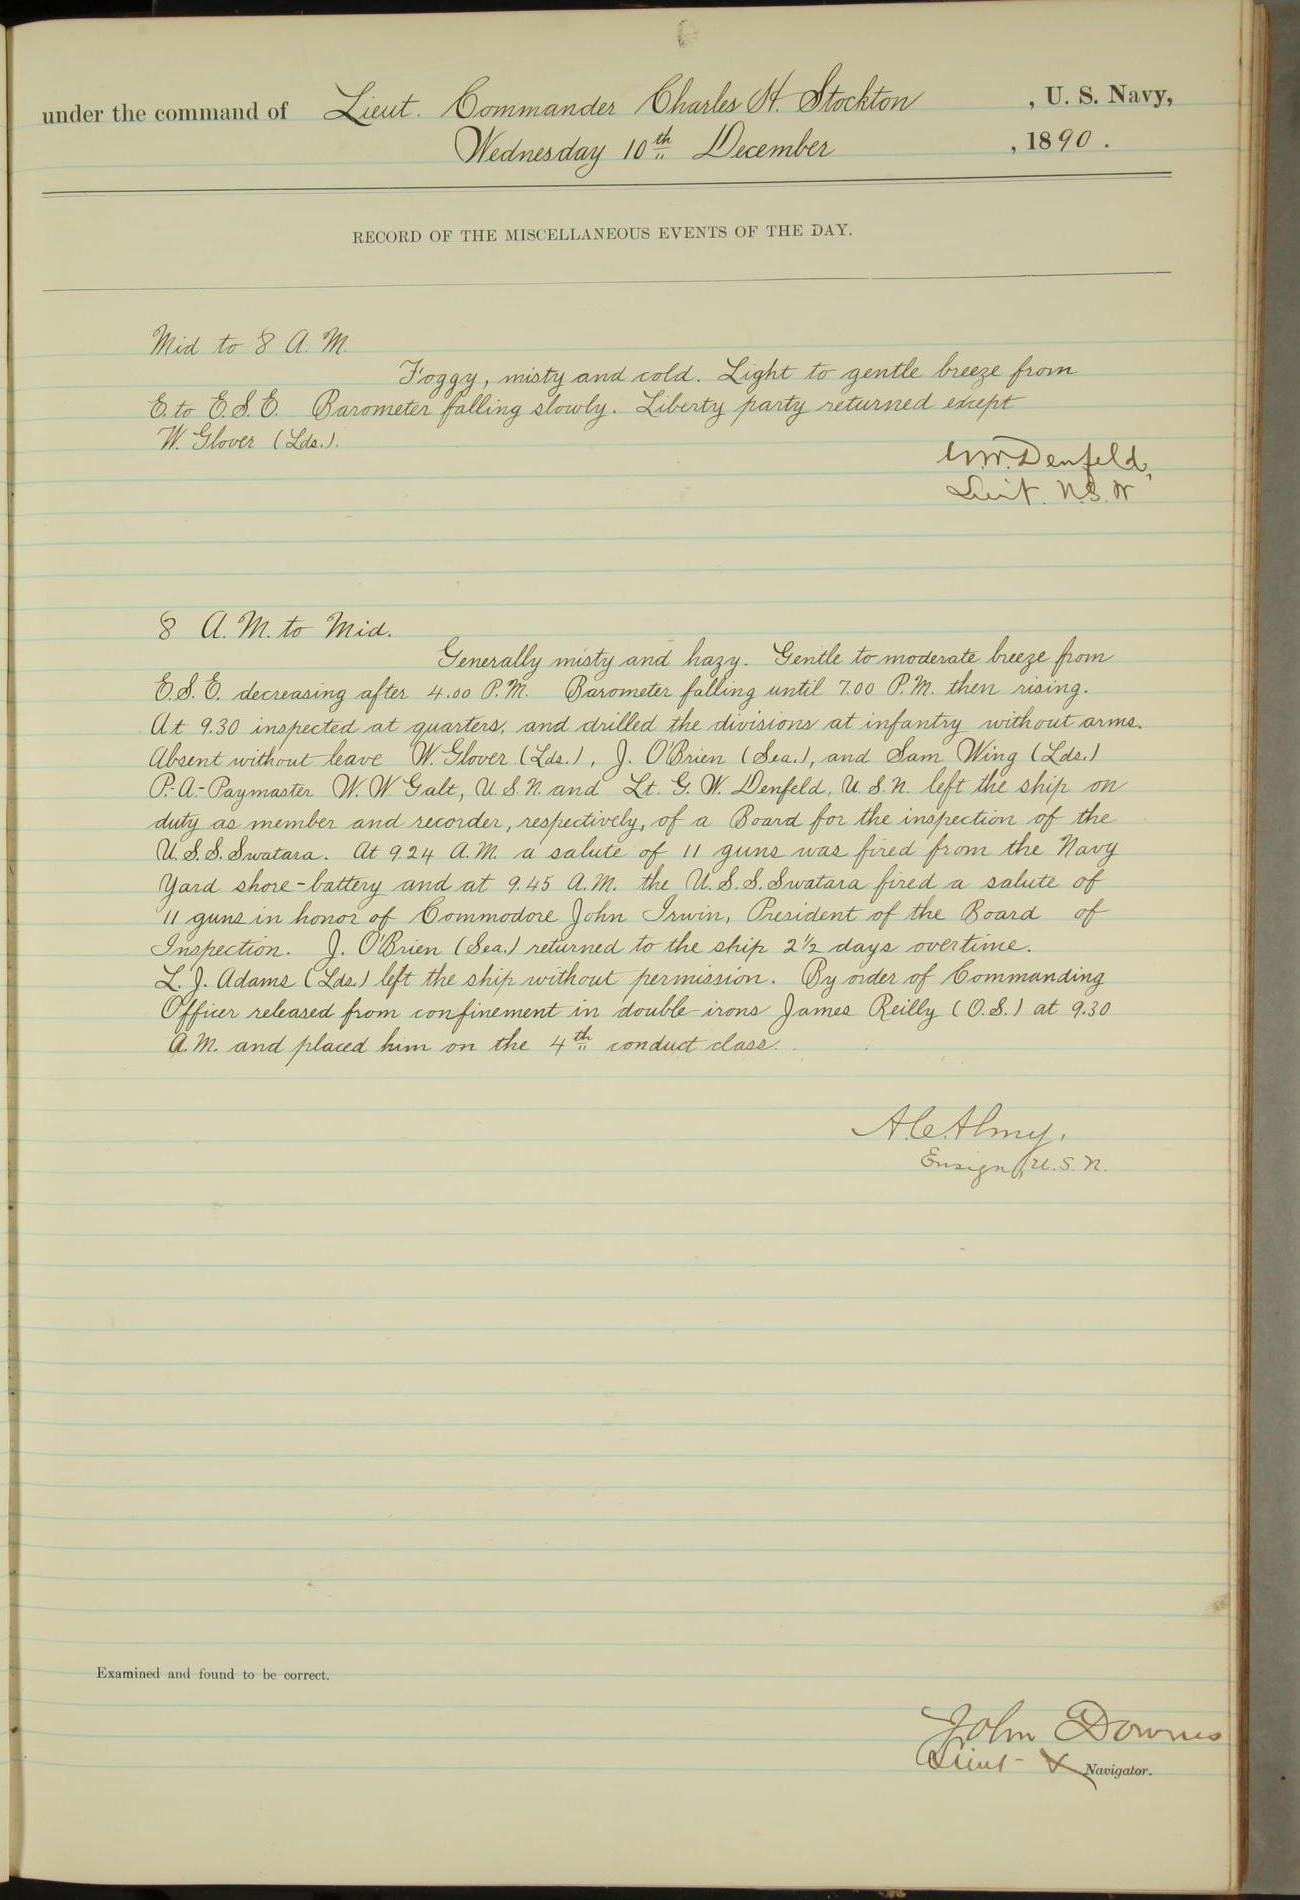 under the command of Lieut. Commander Charles H. Stockton, U. S. Navy,
Wednesday 10th December, 1890.
RECORD OF THE MISCELLANEOUS EVENTS OF THE DAY.
Mid to 8 A. M.
Foggy, misty and cold. Light to gentle breeze from
E. to E.S.E. Barometer falling slowly. Liberty party returned except
W. Glover (Lds.).
G.W. Denfeld,
Lieut. U.S.N
8 A. M. to Mid.
Generally misty and hazy. Gentle to moderate breeze from
E.S.E. decreasing after 4.00 P.M. Barometer falling until 7.00 P.M. then rising.
At 9.30 inspected at quarters, and drilled the divisions at infantry without arms.
Absent without leave W. Glover (Lds.), J. O'Brien (Sea.), and Sam Wing (Lds.)
P.-A.-Paymaster W. W Galt, U.S.N. and Lt. G. W. Denfeld, U.S.N. left the ship on
duty as member and recorder, respectively, of a Board for the inspection of the
U.S.S. Swatara. At 9.24 A.M. a salute of 11 guns was fired from the Navy
Yard shore-battery and at 9.45 A.M. the U.S.S. Swatara fired a salute of
11 guns in honor of Commodore John Irwin, President of the Board of
Inspection. J. O'Brien (Sea.) returned to the ship 2½ days overtime.
L. J. Adams (Lds.) left the ship without permission. By order of Commanding
Officer released from confinement in double-irons James Reilly (O.S.) at 9.30
A.M. and placed him on the 4th conduct class.
A.C. Almy,
Ensign, U.S.N.
Examined and found to be correct.
John Downes
Lieut - & Navigator.